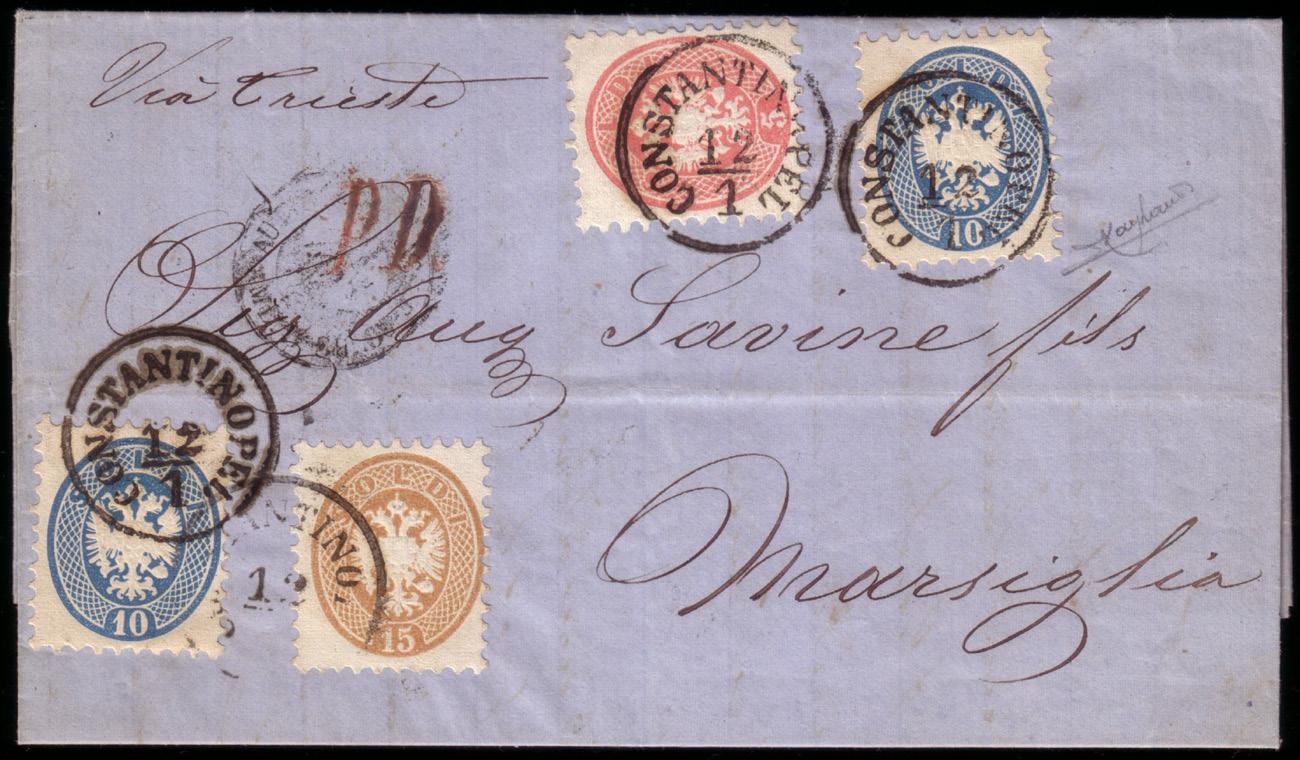 Via Trieste
5
CONSTANTINOPEL
12
1
SOLDI
10
CONSTANTINOPEL
12
1
P.D.
Sig Aug Savine fils
Marsiglia
CONSTANTINOPEL
12
1
10
SOLDI
15
TANTINO
12